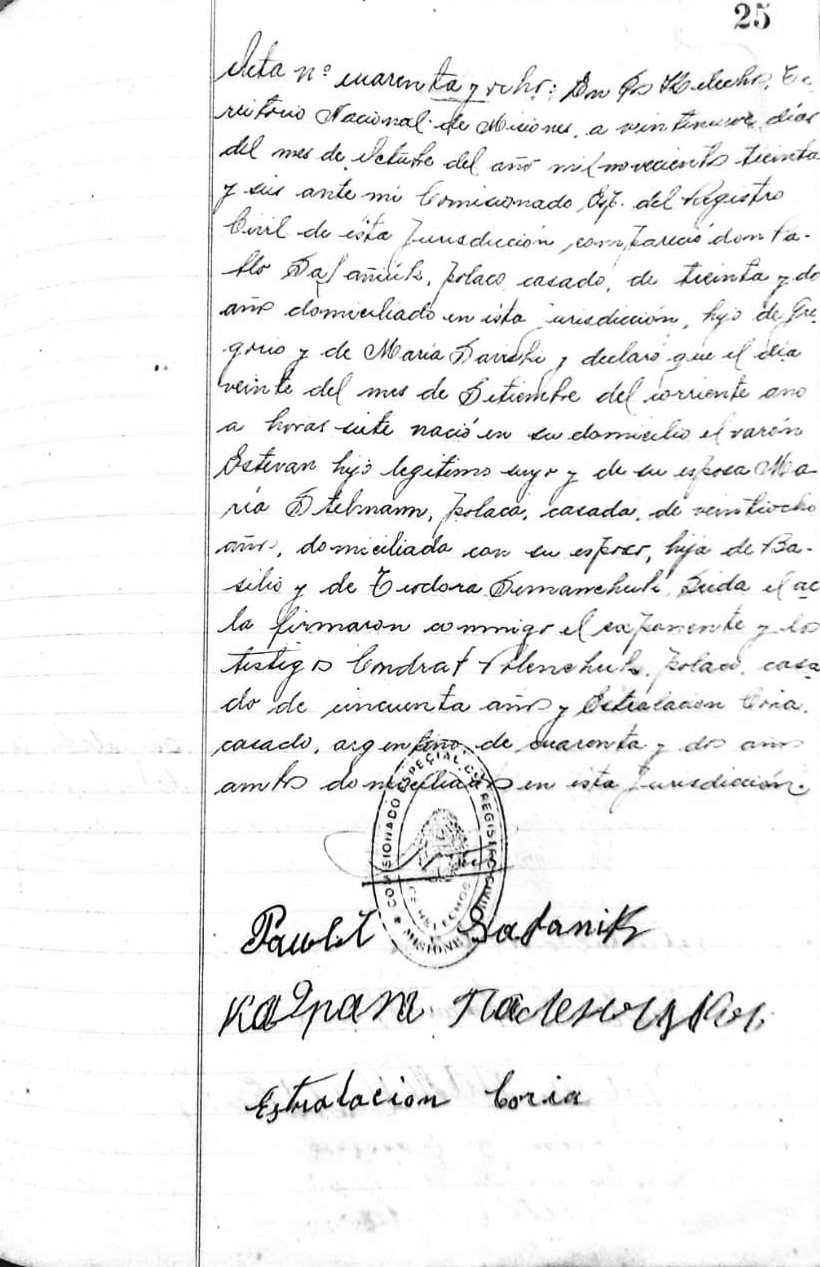 25
Acta nº cuarenta y ocho: En Los Helechos, Te-
rritorio Nacional de Misiones, a veintinueve días
del mes de Octubre del año mil novecientos treinta
y seis ante mi Comisionado Esp. del Registro
Civil de ésta Jurisdicción, compareció don Pa-
blo, polaco, casado, de treinta y dos
años domiciliado en ésta jurisdicción, hijo de Gre-
gorio y de María y declaró que el día
veinte del mes de Setiembre del corriente año
a horas siete nació en su domicilio el varón
Estevan hijo legitimo suyo y de su esposa Ma-
ría Stelmann, polaca, casada, de veintiocho
años, domiciliada con su esposo, hija de Ba-
silio y de Teodora Leida el ac
ta firmaron conmigo el exponente y los
testigos Condrat polaco, casa
do de cincuenta años y Estralacion Coria,
casado, argentino, de cuarenta y dos años
ambos domiciliados en ésta Jurisdicción.
COMISIONADO ESPECIAL DEL REGISTRO CIVIL
HELECHOS
MISIONES
Safanik
Estralacion Coria